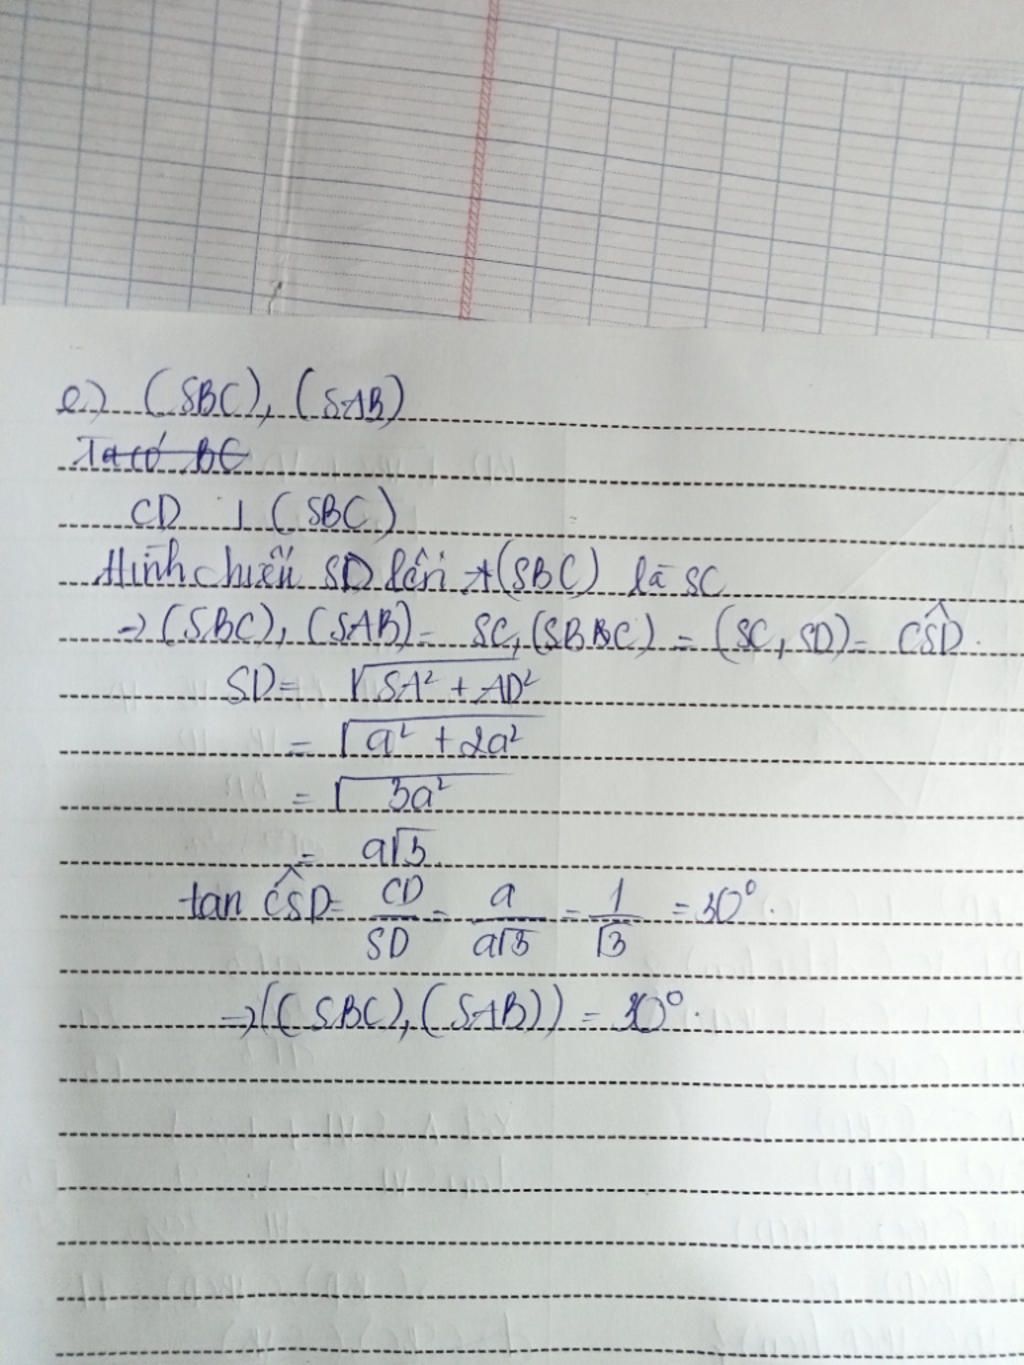 e.) (SBC), (SAB)
Ta có BC
CD ⊥ (SBC)
Hình chiếu SD lên (SBC) là SC
→ (SBC), (SAB) = SC, (SBBC) = (SC, SD) = CŜD.
SD = √SA² + AD²
= √a² + 2a²
= √3a²
= a√3
tan CŜD = CD/SD = a/a√3 = 1/√3 = 30°.
→ ((SBC), (SAB)) = 30°.